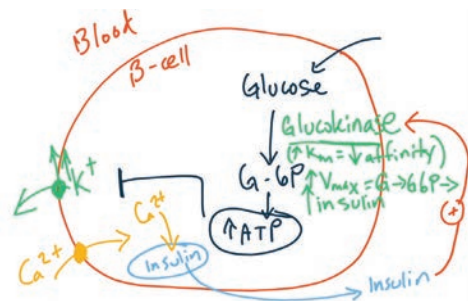 Blood
β-cell
Glucose
Glucokinase
(↑Km=↓affinity)
G-6P
↑Vmax=G→G6P→
↑insulin
↑ATP
K+
Ca2+
Ca2+
Insulin
Insulin
+